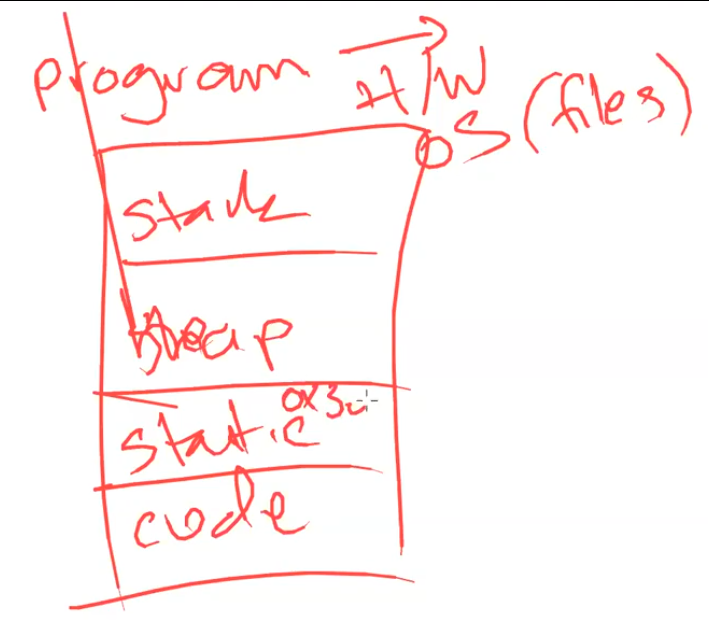 program H/W
OS (files)
stack
heap
0x3
static
code